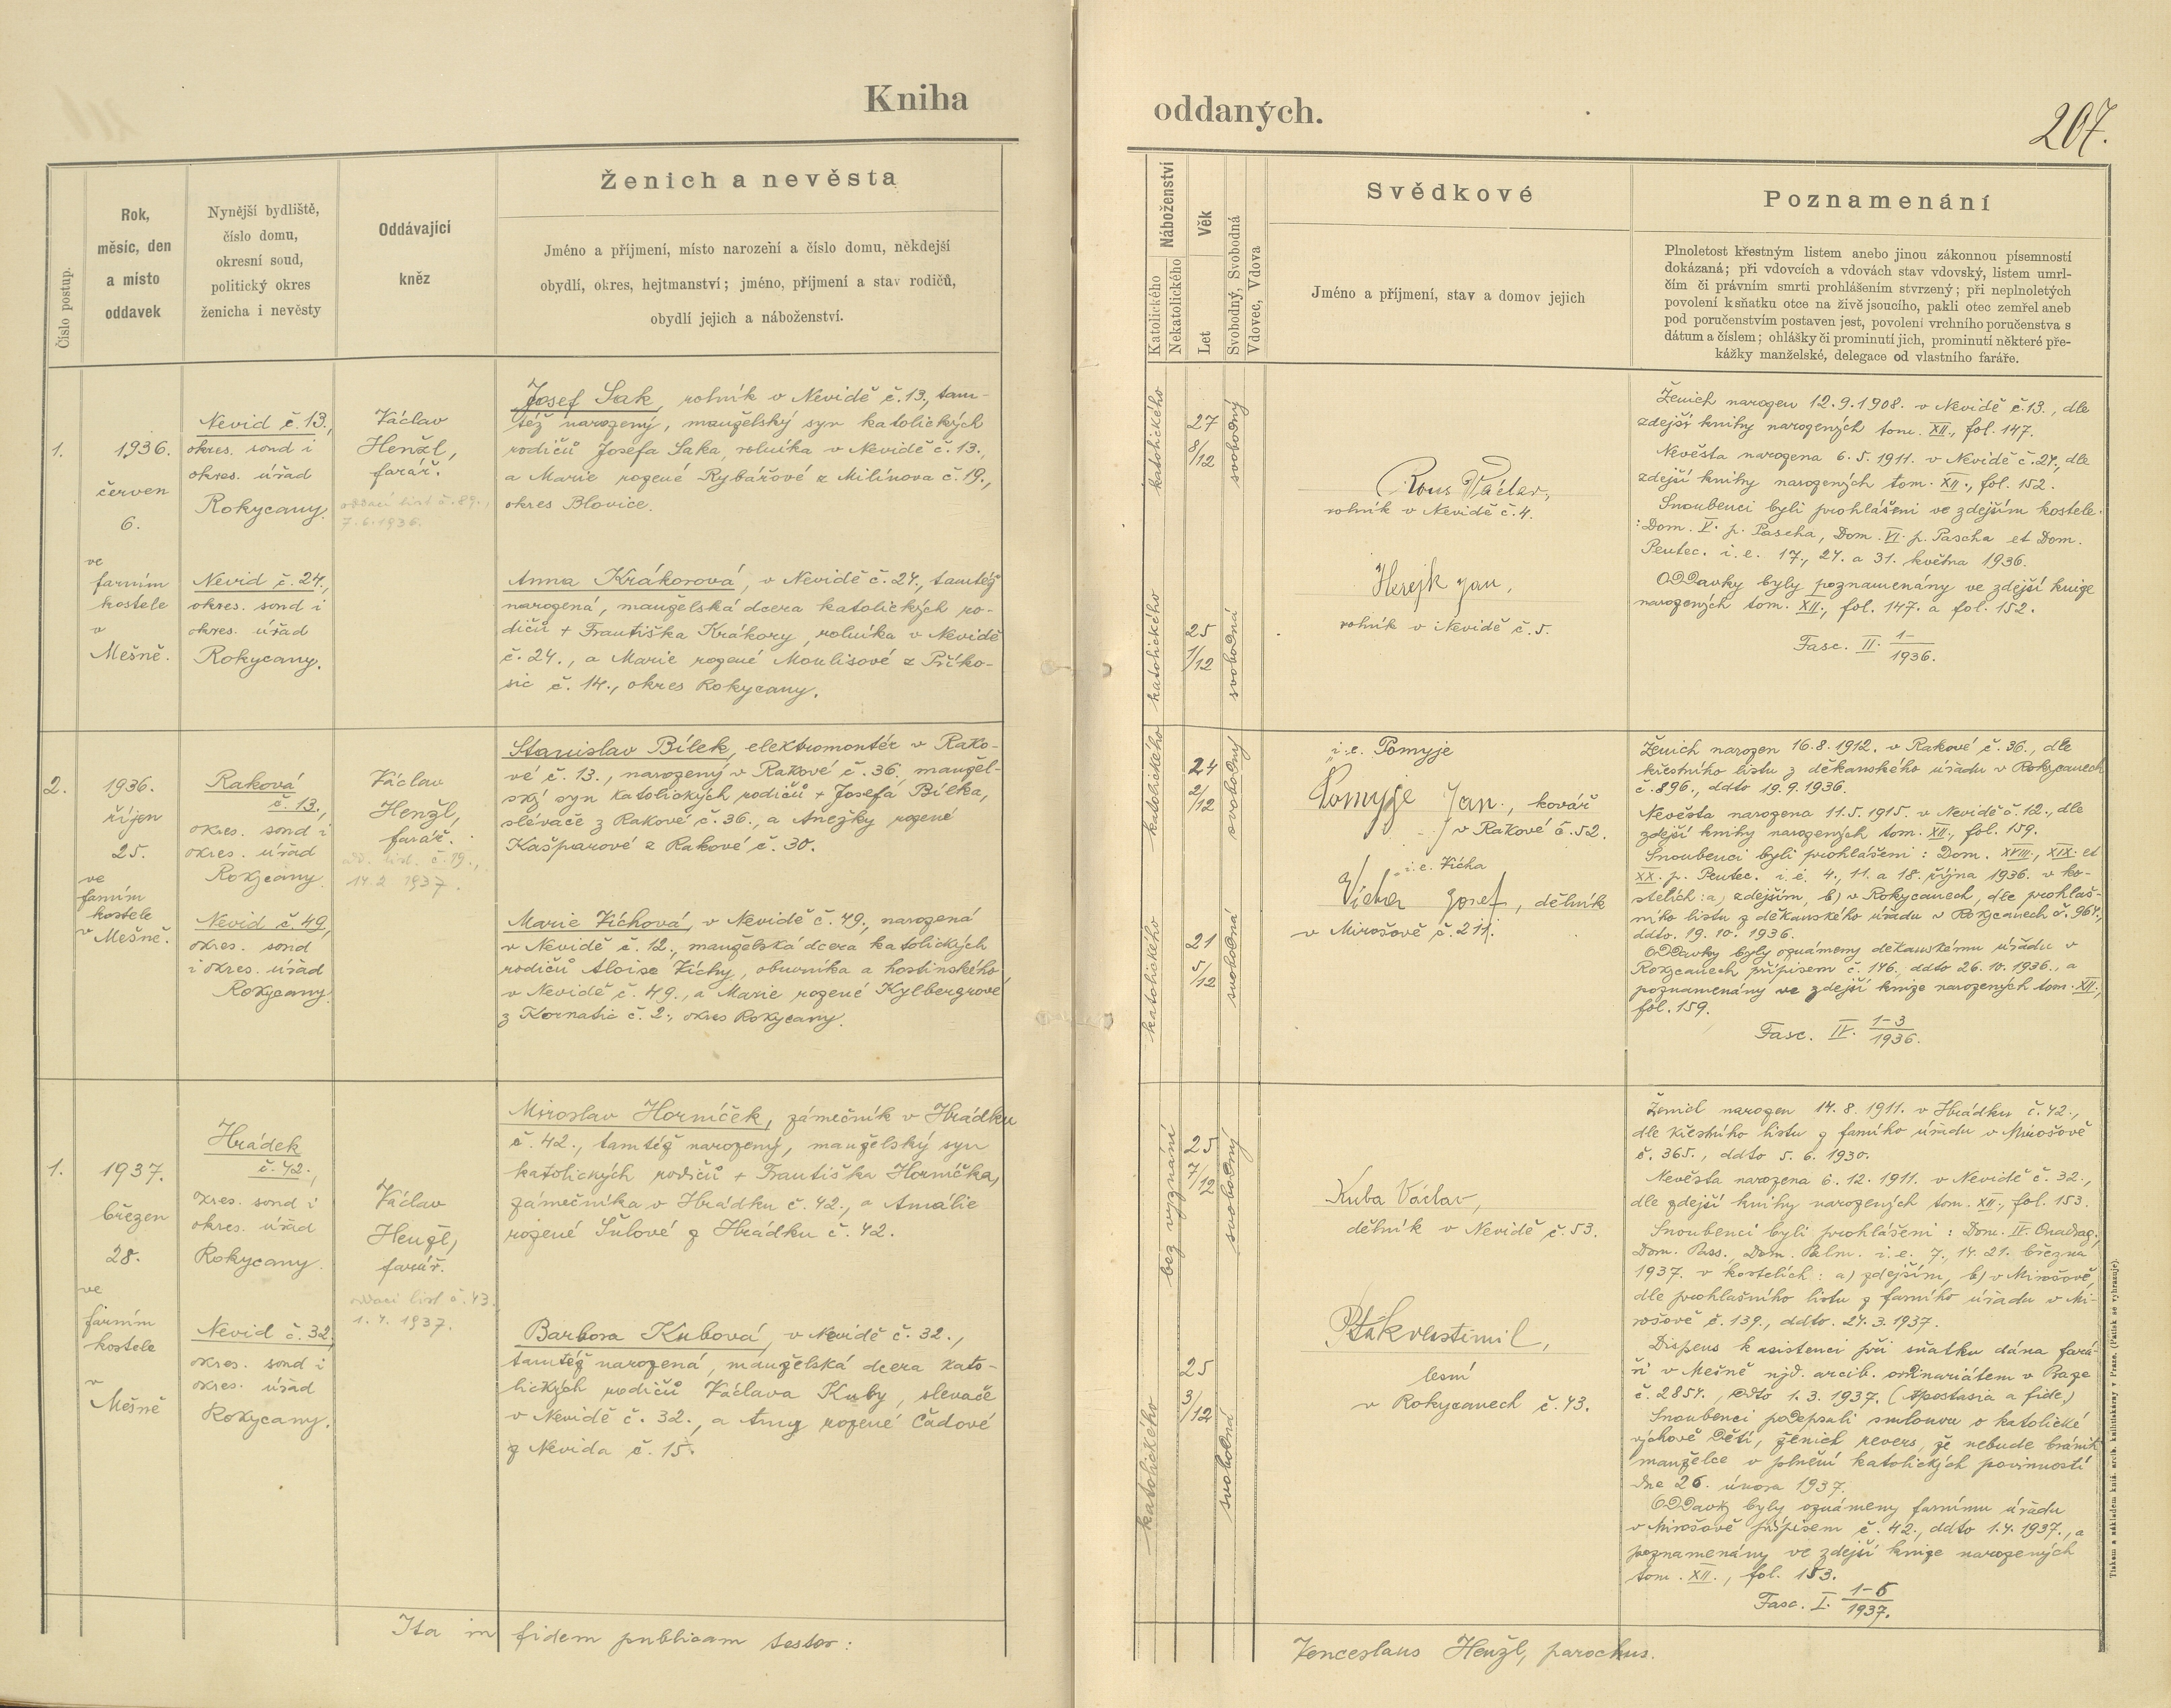 Kniha
oddaných.
207.
Číslo postup.
Rok,
měsíc, den
a místo
oddavek
Nynější bydliště,
číslo domu,
okresní soud,
politický okres
ženicha i nevěsty
Oddávající
kněz
Ženich a nevěsta
Jméno a příjmení, místo narození a číslo domu, někdejší
obydlí, okres, hejtmanství; jméno, příjmení a stav rodičů,
obydlí jejich a náboženství.
Náboženství
Katolického
Nekatolického
Věk
Let
Svobodný, Svobodná
Vdovec, Vdova
Svědkové
Jméno a příjmení, stav a domov jejich
Poznamenání
Plnoletost křestným listem anebo jinou zákonnou písemností
dokázaná; při vdovcích a vdovách stav vdovský, listem umrl-
čím či právním smrti prohlášením stvrzený; při neplnoletých
povolení k sňatku otce na živě jsoucího, pakli otec zemřel aneb
pod poručenstvím postaven jest, povolení vrchního poručenstva s
dátum a číslem; ohlášky či prominutí jich, prominutí některé pře-
kážky manželské, delegace od vlastního faráře.
1.
1936.
červen
6.
ve
farním
kostele
v
Mešně.
Nevid č. 13,
okres. soud i
okres. úřad
Rokycany.
Nevid č. 24.,
okres. soud i
okres. úřad
Rokycany.
Václav
Henžl,
farář.
oddací list č. 89.,
7. 6. 1936.
Josef Sak, rolník v Nevidě č. 13., tam-
též narozený, manželský syn katolických
rodičů Josefa Saka, rolníka v Nevidě č. 13.,
a Marie rozené Rybářové z Milínova č. 19.,
okres Blovice.
Anna Krákorová, v Nevidě č. 24., tamtéž
narozená, manželská dcera katolických ro-
dičů + Františka Krákory, rolníka v Nevidě
č. 24., a Marie rozené Moulisové z Příko-
sic č. 14., okres Rokycany.
katolického
27
8/12
svobodný
katolického
25
1/12
svobodná
Rous Václav,
rolník v Nevidě č. 4.
Herejk Jan,
rolník v Nevidě č. 5.
Ženich narozen 12. 9. 1908. v Nevidě č. 13., dle
zdejší knihy narozených tom. XII., fol. 147.
Nevěsta narozena 6. 5. 1911. v Nevidě č. 24., dle
zdejší knihy narozených tom. XII., fol. 152.
Snoubenci byli prohlášeni ve zdejším kostele
: Dom. V. p. Pascha, Dom. VI. p. Pascha et Dom.
Pentec. i. e. 17., 24. a 31. května 1936.
Oddavky byly poznamenány ve zdejší knize
narozených tom. XII., fol. 147. a fol. 152.
Fasc. II. 1-/1936.
2.
1936.
říjen
25.
ve
farním
kostele
v Mešně.
Raková
č. 13.,
okres. soud i
okres. úřad
Rokycany.
Nevid č. 49,
okres. soud
i okres. úřad
Rokycany.
Václav
Henžl,
farář.
odd. list. č. 19.,
14. 2. 1937.
Stanislav Bílek, elektromontér v Rako-
vé č. 13., narozený v Rakové č. 36., manžel-
ský syn katolických rodičů + Josefa Bílka,
slévače z Rakové č. 36., a Anežky rozené
Kašparové z Rakové č. 30.
Marie Víchová, v Nevidě č. 49., narozená
v Nevidě č. 12., manželská dcera katolických
rodičů Aloise Víchy, obuvníka a hostinského
v Nevidě č. 49., a Marie rozené Kylbergrové
z Kornatic č. 2., okres Rokycany.
katolického
24
2/12
svobodný
katolického
21
5/12
svobodná
i. e. Pomyje
Pomyje Jan., kovář
v Rakové č. 52.
i. e. Vícha
Vícha Josef, dělník
v Mirošově č. 211.
Ženich narozen 16. 8. 1912. v Rakové č. 36., dle
křestního listu z děkanského úřadu v Rokycanech
č. 896., ddto 19. 9. 1936.
Nevěsta narozena 11. 5. 1915. v Nevidě č. 12., dle
zdejší knihy narozených tom. XII., fol. 159.
Snoubenci byli prohlášeni: Dom. XVIII., XIX. et
XX. p. Pentec. i. e. 4., 11. a 18. října 1936. v ko-
stelích: a) zdejším, b) v Rokycanech, dle prohlaš-
ního listu z děkanského úřadu v Rokycanech č. 964.,
ddto. 19. 10. 1936.
Oddavky byly oznámeny děkanskému úřadu v
Rokycanech přípisem č. 146., ddto 26. 10. 1936., a
poznamenány ve zdejší knize narozených tom. XII.,
fol. 159.
Fasc. IV. 1-3/1936.
1.
1937.
březen
28.
ve
farním
kostele
v
Mešně
Hrádek
č. 42.,
okres. soud i
okres. úřad
Rokycany.
Nevid č. 32
okres. soud i
okres. úřad
Rokycany.
Václav
Henžl,
farář.
oddací list č. 43.
1. 4. 1937.
Miroslav Horníček, zámečník v Hrádku
č. 42., tamtéž narozený, manželský syn
katolických rodičů + Františka Horníčka,
zámečníka v Hrádku č. 42., a Amálie
rozené Šůlové z Hrádku č. 42.
Barbora Kubová, v Nevidě č. 32.,
tamtéž narozená, manželská dcera kato-
lických rodičů Václava Kuby, slevače
v Nevidě č. 32., a Anny rozené Čadové
z Nevida č. 15.
bez vyznání
25
7/12
svobodný
katolického
25
3/12
svobodná
Kuba Václav,
dělník v Nevidě č. 53.
Pták Vlastimil,
lesní
v Rokycanech č. 43.
Ženich narozen 14. 8. 1911. v Hrádku č. 42.,
dle křestního listu z farního úřadu v Mirošově
č. 365., ddto 5. 6. 1930.
Nevěsta narozena 6. 12. 1911. v Nevidě č. 32.,
dle zdejší knihy narozených tom. XII., fol. 153.
Snoubenci byli prohlášeni: Dom. IV. Quadrag.,
Dom. Pass., Dom. Palm. i. e. 7., 14. 21. března
1937. v kostelích: a) zdejším, b) v Mirošově,
dle prohlašního listu z farního úřadu v Mi-
rošově č. 139., ddto. 24. 3. 1937.
Dispens k asistenci při sňatku dána fará-
ři v Mešně njd. arcib. ordinariátem v Praze
č. 2854., ddto 1. 3. 1937. (Apostasia a fide.)
Snoubenci podepsali smlouvu o katolické
výchově dětí, ženich revers, že nebude bránit
manželce v plnění katolických povinností
dne 26. února 1937.
Oddavky byly oznámeny farnímu úřadu
v Mirošově přípisem č. 42., ddto 1. 4. 1937., a
poznamenány ve zdejší knize narozených
tom. XII., fol. 153.
Fasc. I. 1-6/1937.
Ita in fidem publicam testor:
Venceslaus Henžl, parochus.
Tiskem a nákladem kníž. arcib. knihtiskárny v Praze. (Patisk se vyhrazuje).